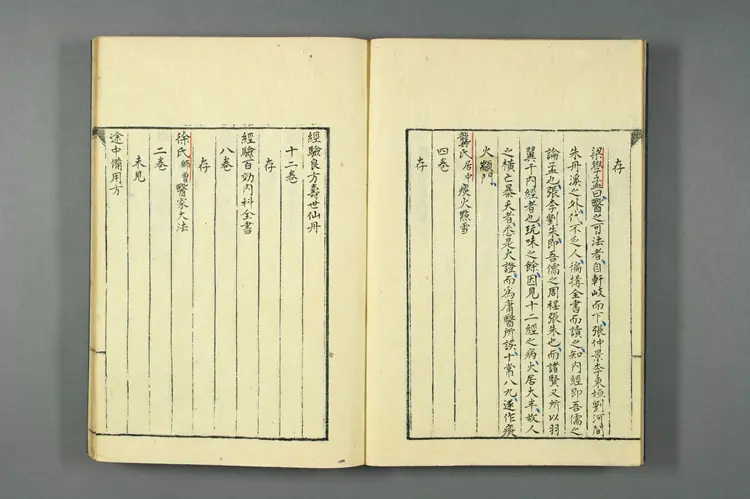 存
梁學孟曰醫之可法者自軒岐而下張仲景李東垣劉河間
朱丹溪之外代不乏人徧搆全書而讀之知內經即吾儒之
論孟也張李劉朱即吾儒之周程張朱也而諸賢又所以羽
翼乎內經者也玩味之餘因見十二經之病火居大半故人
之橫亡暴夭者悉是火證而爲庸醫所誤十常八九遂作痰
火顓門
龔氏居中痰火點雪
四卷
存
經驗良方壽世仙丹
十二卷
存
經驗百効內科全書
八卷
存
徐氏師曾醫家大法
二卷
未見
途中備用方